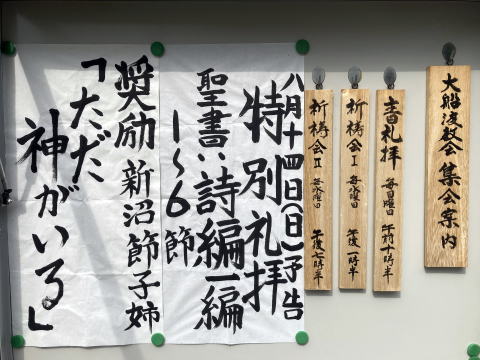 大船渡教会 集会案内
主日礼拝 毎日曜日 午前十時半
祈祷会Ⅰ 毎水曜日 午後一時半
祈祷会Ⅱ 毎水曜日 午後七時半
八月十四日(日)予告
特別礼拝
聖書:詩編一編
1~6節
奨励 新沼節子姉
「ただ
神がいる」